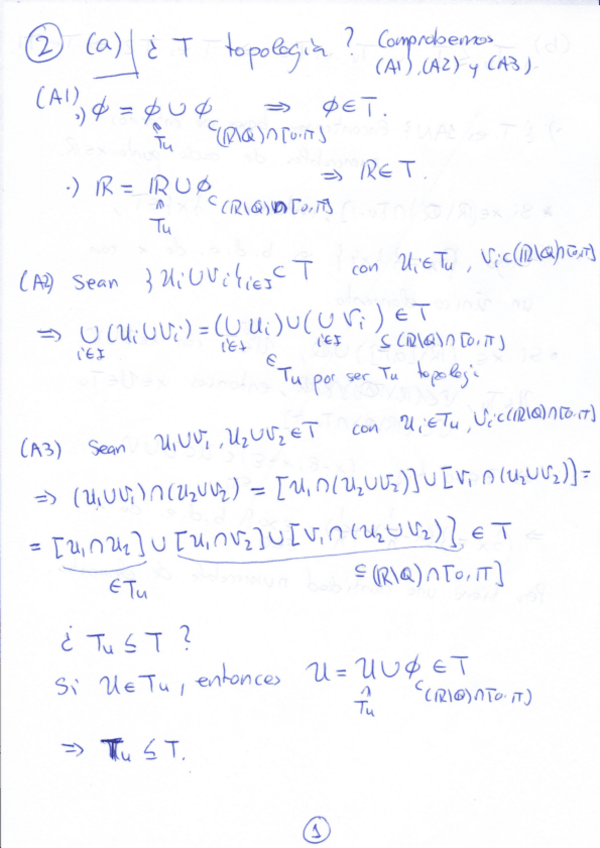 ② (a) ¿ T topología ? Comprobemos
(A1), (A2) y (A3).
(A1) ·) ∅ = ∅ ∪ ∅ ⇒ ∅ ∈ T.
∩ Tu ⊂ (ℝ\ℚ)∩[0,π]
·) ℝ = ℝ ∪ ∅ ⇒ ℝ ∈ T.
∩ Tu ⊂ (ℝ\ℚ)∩[0,π]
(A2) Sean {Ui ∪ Vi}i∈I ⊂ T con Ui ∈ Tu, Vi ⊂ (ℝ\ℚ)∩[0,π]
⇒ ∪i∈I (Ui ∪ Vi) = (∪i∈I Ui) ∪ (∪i∈I Vi) ∈ T
∈ Tu por ser Tu topologí ⊆ (ℝ\ℚ)∩[0,π]
(A3) Sean U1∪V1, U2∪V2 ∈ T con Ui ∈ Tu, Vi ⊂ (ℝ\ℚ)∩[0,π]
⇒ (U1∪V1) ∩ (U2∪V2) = [U1∩(U2∪V2)] ∪ [V1∩(U2∪V2)] =
= [U1∩U2] ∪ [U1∩V2] ∪ [V1∩(U2∪V2)] ∈ T
∈ Tu ⊆ (ℝ\ℚ)∩[0,π]
¿ Tu ≤ T ?
Si U ∈ Tu, entonces U = U ∪ ∅ ∈ T
∩ Tu ⊂ (ℝ\ℚ)∩[0,π]
⇒ Tu ≤ T.
①